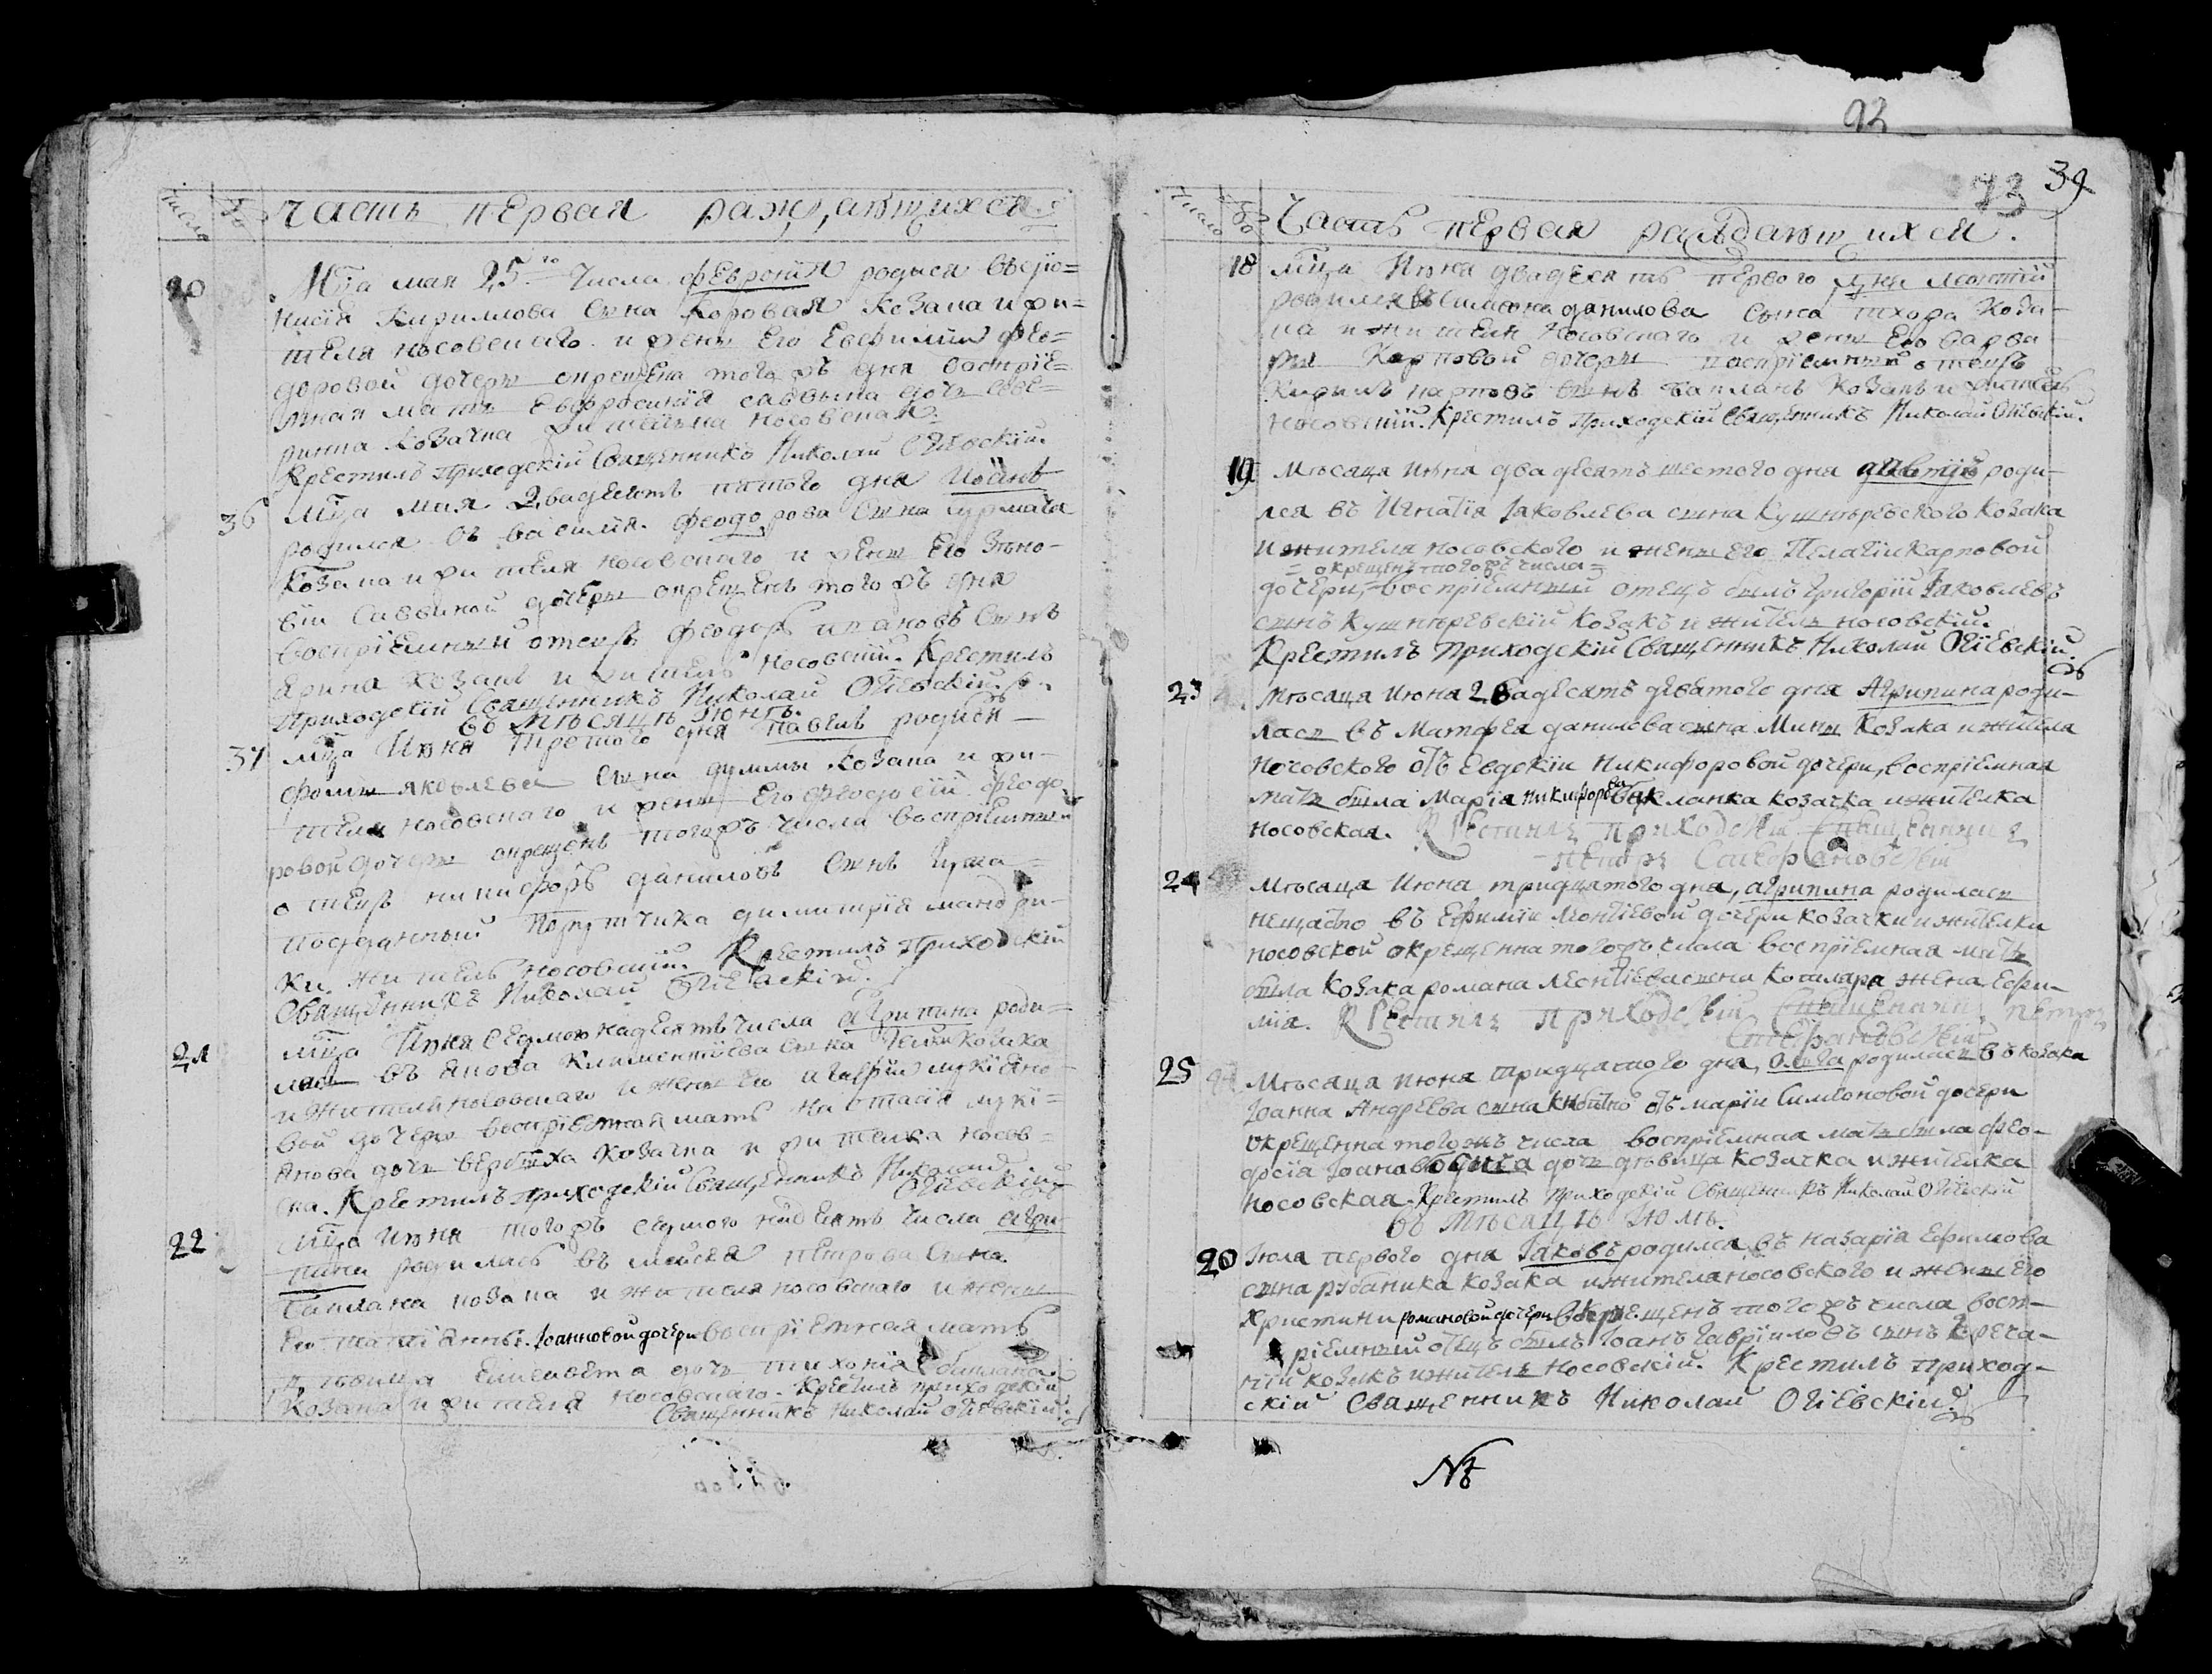 Число
часть первая раждающихся
20
Мца мая 25го числа феврония родися въ дїо=
нисїя Кириллова сына Коровая козака и жи=
теля носовскаго и жены его Евфимїи фео=
доровой дочеры окрещена того жъ дня воспрїе=
мная мать Евфросинїя саввына дочь
козачка жителька носовская.
Крестилъ приходскїй Священникъ Николай Огїевскїй.
36
Мца мая Двадцять пятого дня Иоаннъ
родился въ василїя феодорова сына
козака и жителя носовскаго и жены его Зѣно=
вїи Саввиной дочеры окрещенъ того жъ дня
воспрїемный отецъ феодоръ ивановъ сынъ
Ярина козакъ и житель носовскїй. Крестилъ
приходскїй Священникъ Николай Огїевскїй.
въ Мѣсяцѣ Іюнѣ.
37
Мца Июня третого дня павелъ родися
фомы яковлева сына думмы козака и жи=
теля носовскаго и жены его феодосїи феодо=
ровой дочеры окрещенъ тогожъ числа воспрїемный
отецъ никифоръ даниловъ сынъ
подданный порутчика димитрїя
ки житель носовскїй. Крестилъ Приходскїй
Священникъ Николай Огїевскїй.
21
Мца Июня седмого надесять числа агрипина роди=
лась въ якова Климентїева сына
и жителя носовскаго и жены его агафїи лукїяно=
вой дочеры воспрїемная мать настасїя лукї=
янова дочь вербиха козачка и жителка носов=
ска. Крестилъ приходскїй Священникъ Николай
Огїевскїй
22
Мца Июня того жъ седмого надесять числа агри
пина родилась въ моисея петрова сына
каплана козака и жителя носовскаго и жены
его татїянны Іоанновой дочери воспрїемная мать
дѣвица Елисавета дочь тихонїя
козака и жителя носовскаго. Крестилъ приходскїй
Священникъ Николай Огїевскїй.
92
73 39
Число
Часть первая раждающихся.
18
Мца Июня двадесять первого дня Леонтїй
родился въ Симеона данилова сына тхора коза-
ка и жителя носовского и жены его варва
ры Карповой дочеры воспрїемный отецъ
Кирилъ карповъ сынъ капланъ козакъ и житель
носовскїй. Крестилъ Приходскїй Священникъ Николай Огїевскїй.
19
Мѣсяца июня двадесять шестого дня роди-
лся въ Игнатїя Іаковлева сына Кушнѣревского козака
и жителя носовского и жены его Пелагїи карповой
= окрещенъ тогожъ числа =
дочери, воспрїемный отецъ былъ Григорїй Іаковлевъ
сынъ Кушнѣревскїй козакъ и житель носовскїй.
Крестилъ Приходскїй Священникъ Николай Огїевскїй.
23
Мѣсяца июня двадесять девятого дня Агрипина роди-
лась въ Матфея данилова сына Мины козака и жителя
носовского отъ Евдокїи Никифоровой дочери, воспрїемная
мать была Марїя никифорова капланка козачка и жителка
носовская. Крестилъ приходскїй священникъ
петръ Стефановскїй
24
Мѣсяца июня тридцатого дня, агрипина родилась
нещасно въ Ефимїи Леонтїевой дочери козачки и жителки
носовской окрещенна тогожъ числа воспрїемная мать
была козака романа леонтїева сына котляра жена Ефи-
мїя. Крестилъ приходскїй священникъ петръ
Стефановскїй
25
Мѣсяца июня тридцатого дня, олга родилась въ козака
Іоанна Андреева сына отъ марїи Симеоновой дочери
окрещенна тогожъ числа воспрїемная мать была фео-
дсїя Іоанова дочь дѣвица козачка и жителка
носовская. Крестилъ Приходскїй Священникъ Николай Огїевскїй
въ Мѣсяцѣ Іюлѣ.
20
Июля первого дня Іаковъ родился въ назарїя Ефимова
сына рубаника козака и жителя носовского и жены его
христины романовой дочери окрещенъ тогожъ числа восп-
рїемный отецъ былъ Іоанъ Гаврїиловъ сынъ
козакъ и житель носовскїй. Крестилъ приход-
скїй Священникъ Николай Огїевскїй.